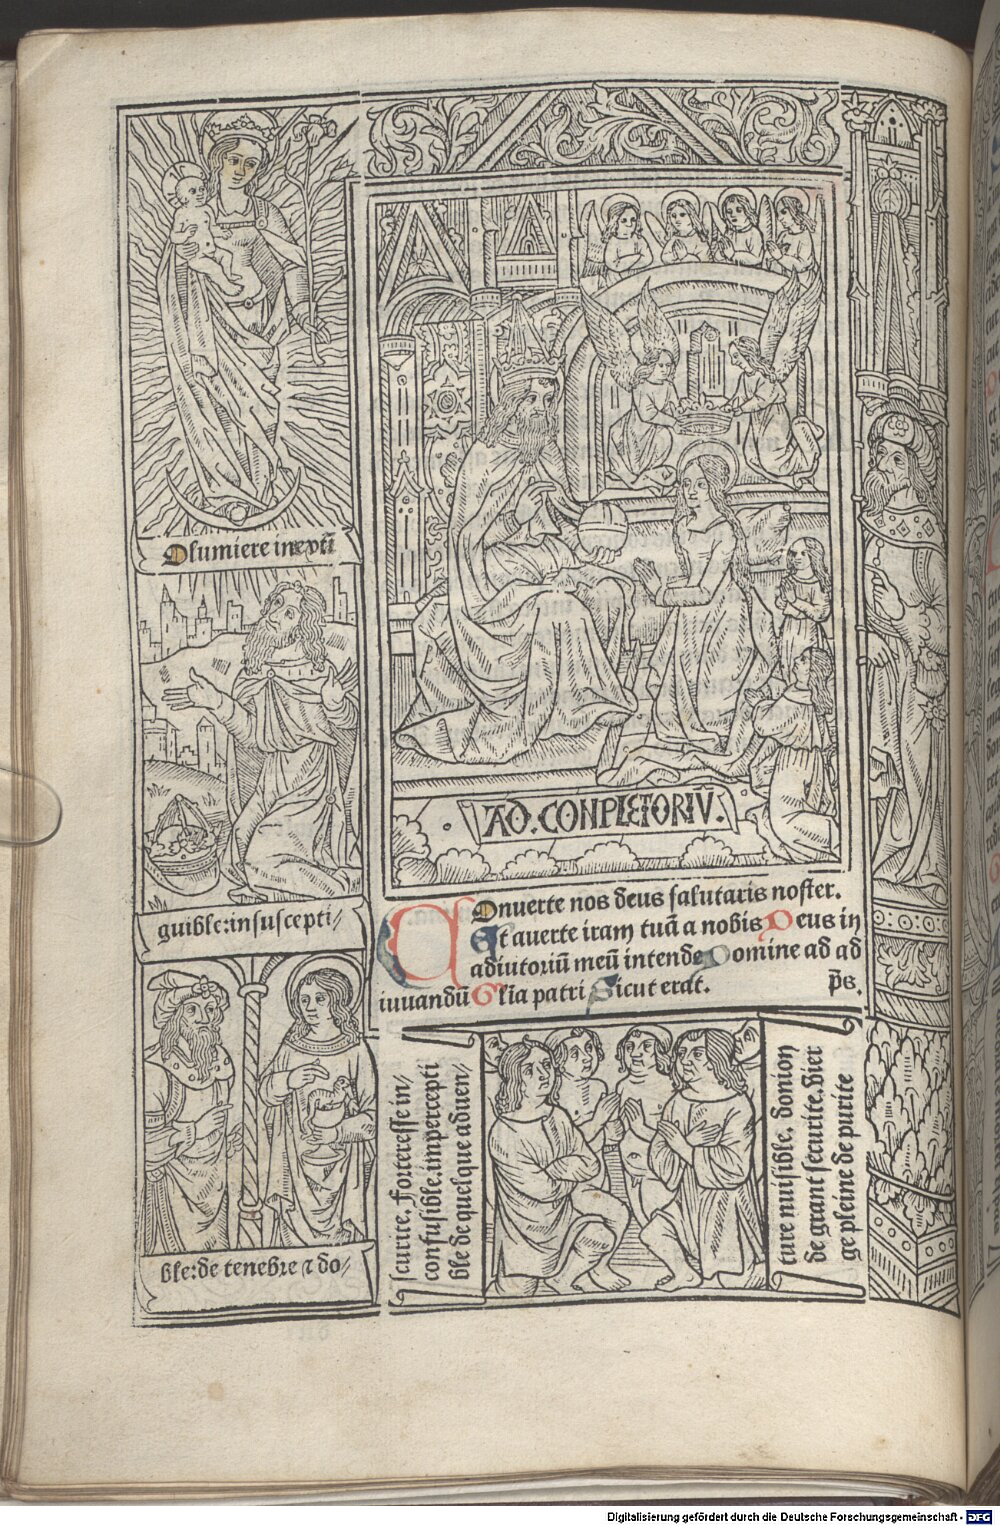 O lumiere inexti
guible:insuscepti/
ble:de tenebre ⁊ do/
AD.CONPLETORIV̄.
COnuerte nos deus salutaris noster.
Et auerte iram tuā a nobis Deus in
adiutoriū meū intende Domine ad ad
iuuandū Glia patri Sicut erat. p̄s.
scurite. Forteresse in/
confusible.impercepti
ble de quelque aduen/
ture nuisible. donion
de grant securite.vier
ge pleine de purite
Digitalisierung gefördert durch die Deutsche Forschungsgemeinschaft - DFG